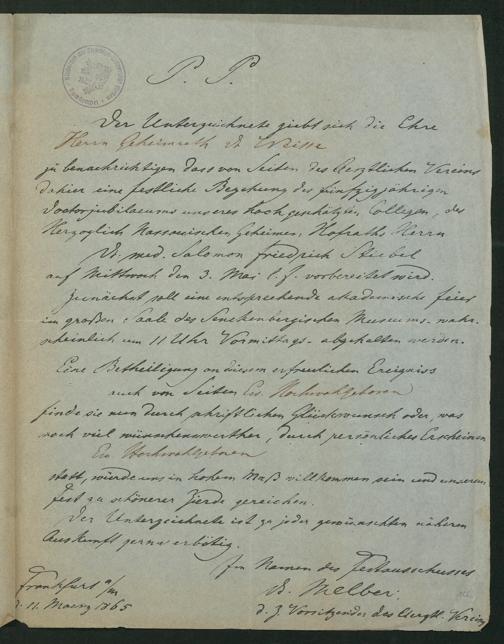 P. P.
Der Unterzeichnete giebt sich die Ehre
Herrn Geheimrath Dr
zu benachrichtigen dass von Seiten des Aerztlichen Vereins
dahier eine festliche Begehung des fünfzigjährigen
Doctorjubilaeums unseres hochgeschätzten Collegen, des
Herzoglich Nassauischen Geheimen Hofraths Herrn
Dr. med. Salomon Friedrich Stiebel
auf Mittwoch den 3. Mai l. J. vorbereitet wird.
Zunächst soll eine entsprechende akademische Feier
im großen Saale des Senckenbergischen Museums - wahr-
scheinlich um 11 Uhr Vormittags - abgehalten werden.
Eine Betheiligung an diesem erfreulichen Ereigniss
auch von Seiten Ew. Hochwohlgeboren
finde sie nun durch schriftlichen Glückwunsch oder, was
noch viel wünschenswerther, durch persönliches Erscheinen
Ew Hochwohlgeboren
statt, würde uns in hohem Maß willkommen sein und unserem
Fest zu schönerer Zierde gereichen.
Der Unterzeichnete ist zu jeder gewünschten näheren
Auskunft gerne erbötig.
Im Namen des Festausschusses
Dr. Melber.
d. Z. Vorsitzender des Aerztl. Vereins
Frankfurt a/M
d. 11. Maerz 1865